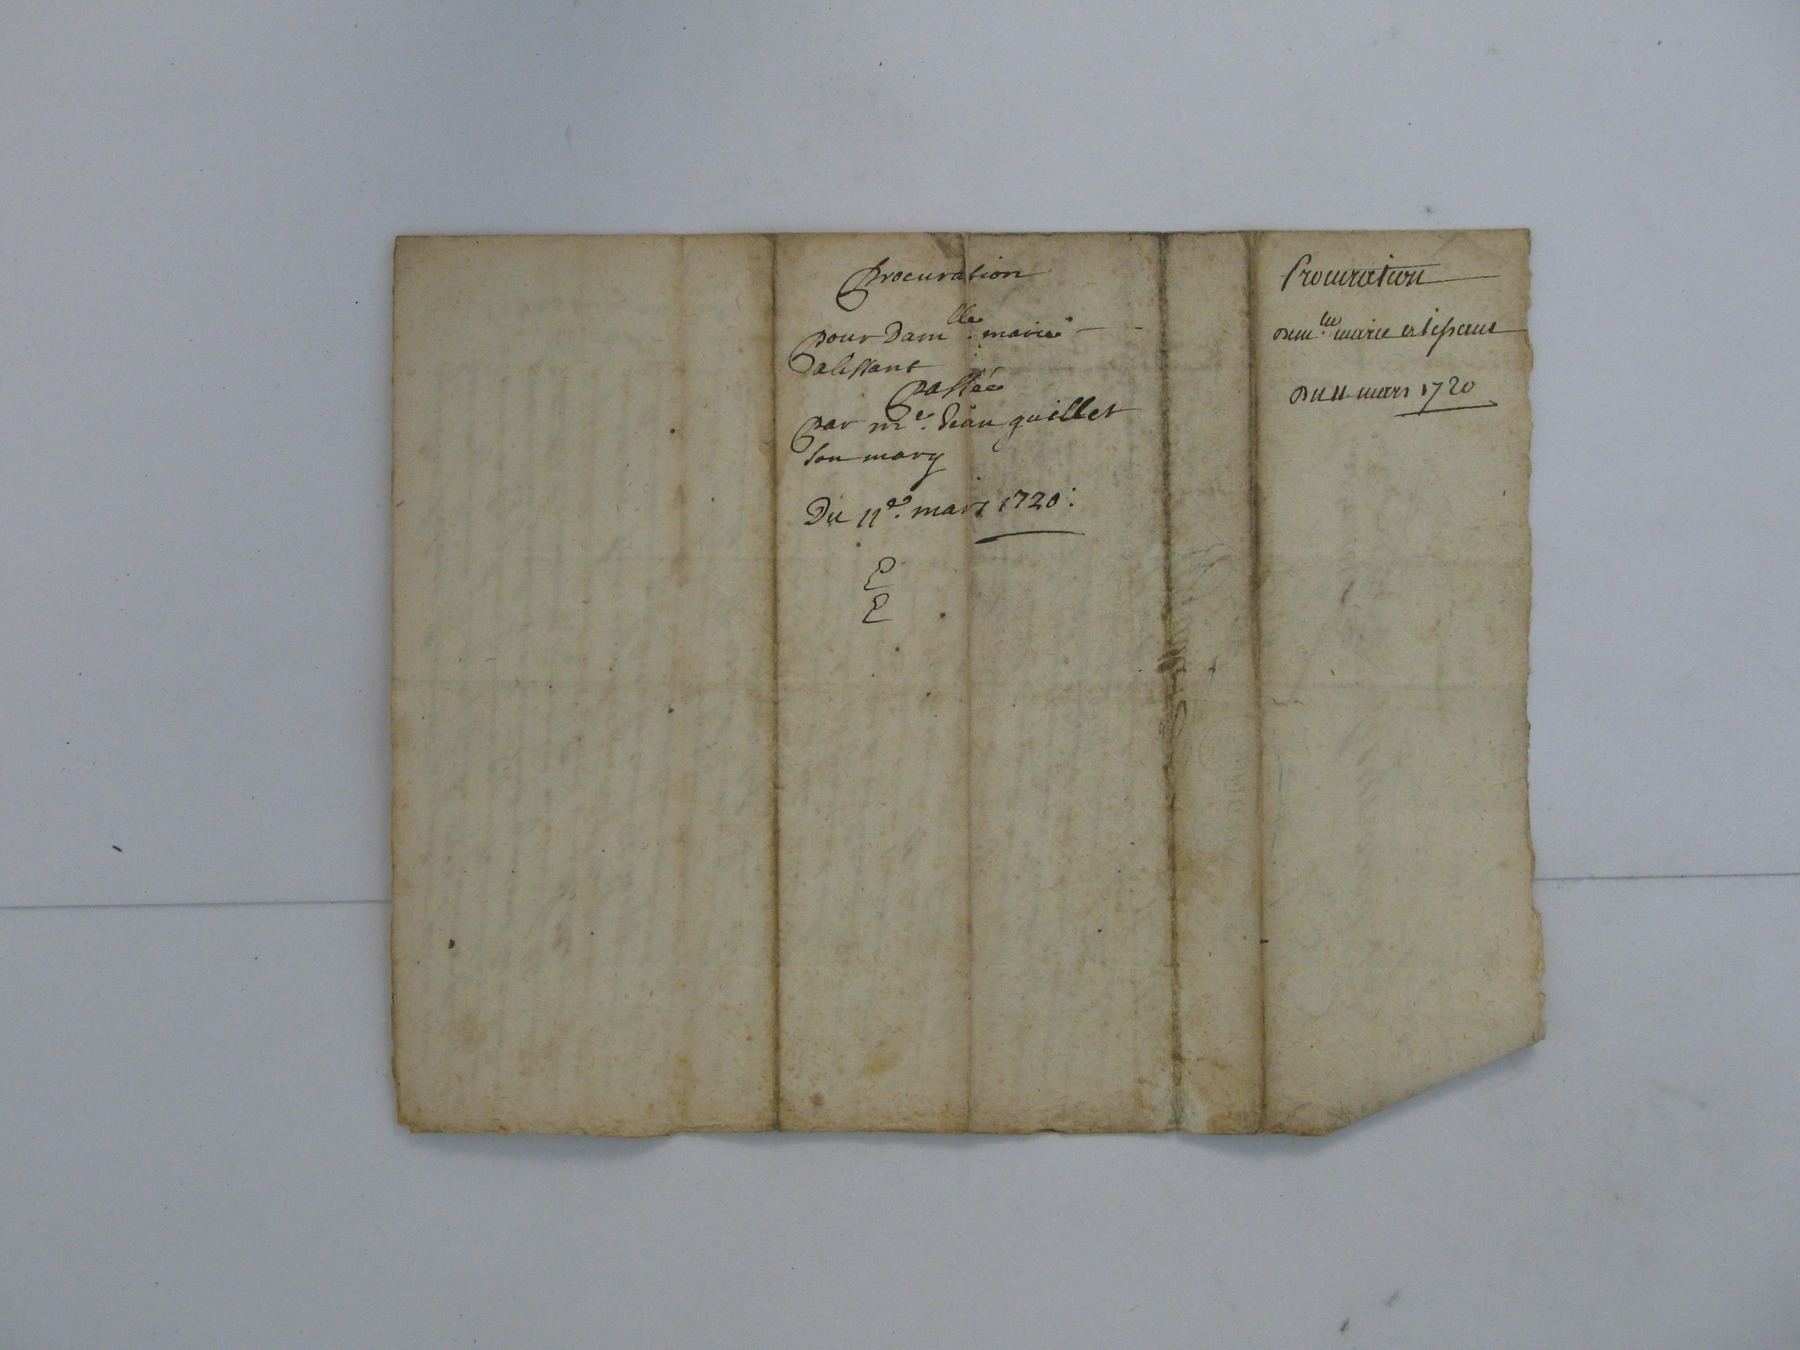 Procuration
pour Dam.lle marie
alissant
passée
par me. Jean quillet
son mary
Du 11e. mars 1720:
Procuration
Dem.lle marie
Du 11 mars 1720